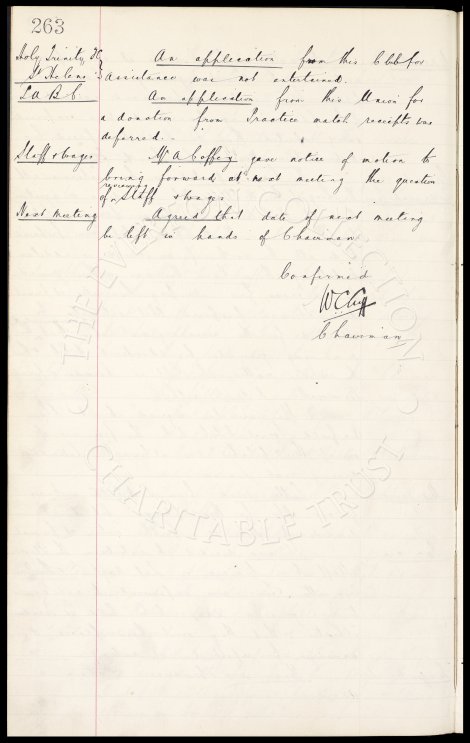 263
Holy Trinity FC
St Helens
An application from this Club for
assistance was not entertained.
L A B C.
An application from this Union for
a donation from Practice match receipts was
deferred. -
Staff & Wages
Mr A Coffey gave notice of motion to
bring forward at next meeting the question
of reviewing Staff & wages
Next Meeting
Agreed that date of next meeting
be left in hands of Chairman
Confirmed
W.C. Cuff
Chairman
THE EVERTON COLLECTION
CHARITABLE TRUST